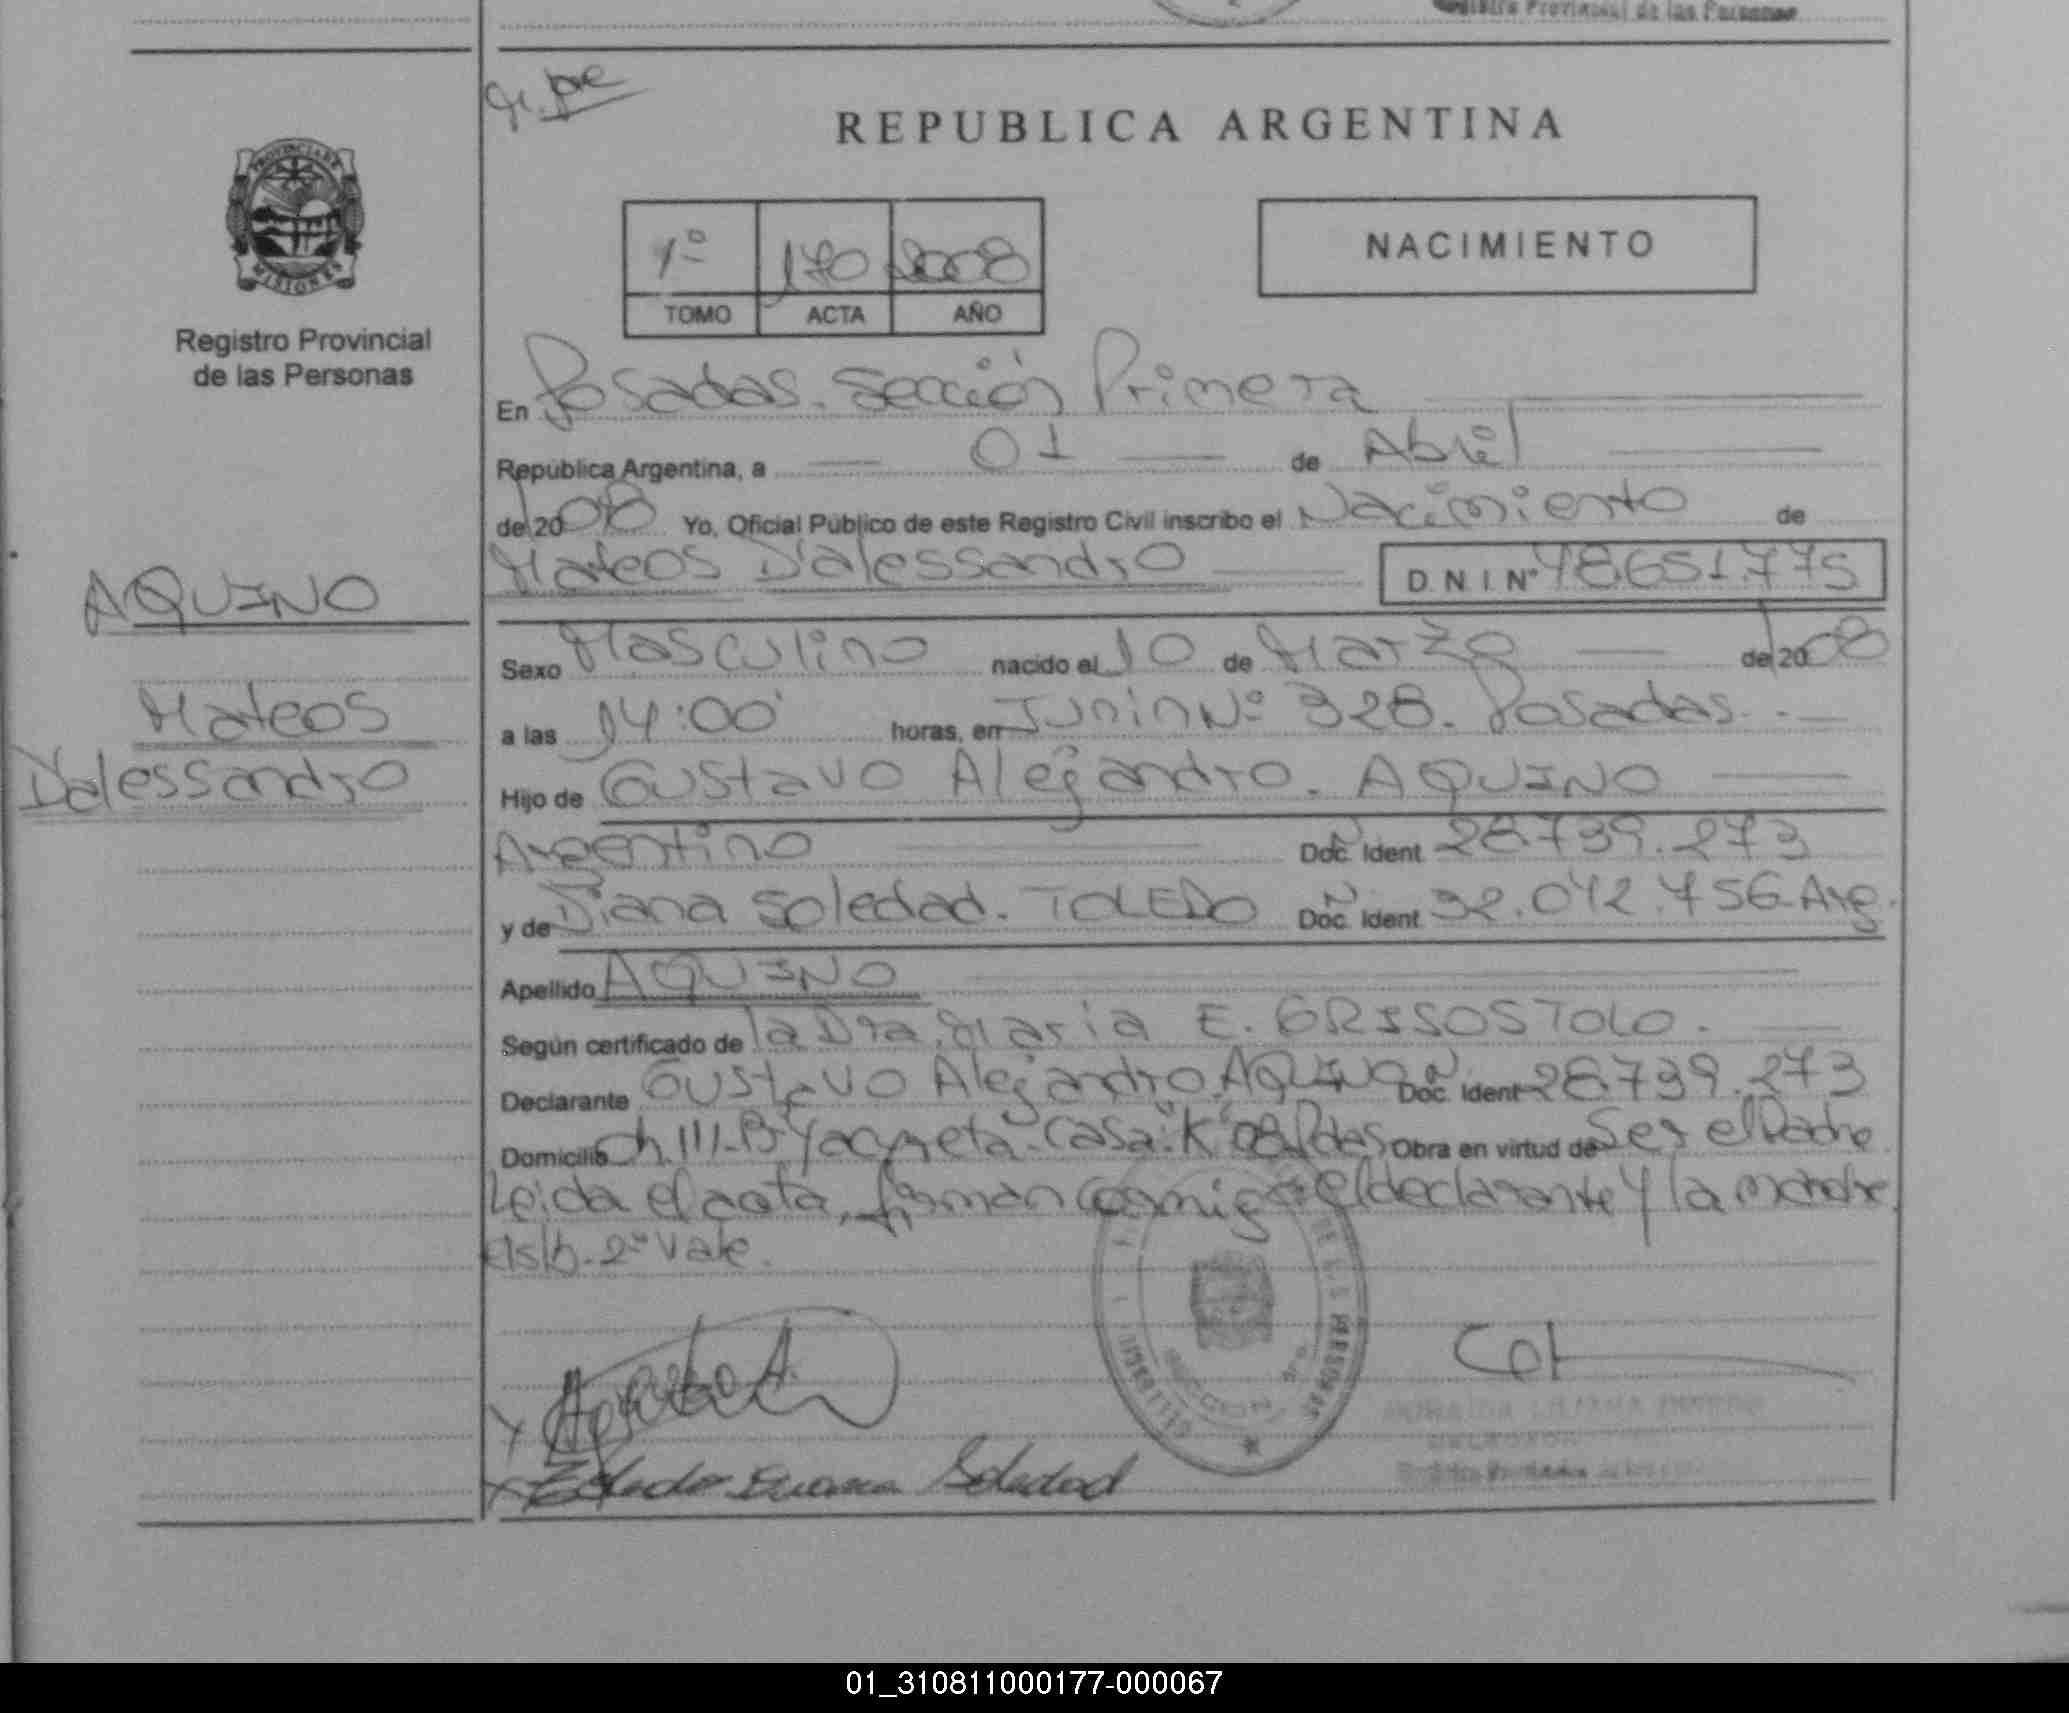 Registro Provincial de las Personas
REPUBLICA ARGENTINA
PROVINCIA DE
MISIONES
Registro Provincial
de las Personas
1º 170 2008
TOMO ACTA AÑO
NACIMIENTO
En Posadas. Sección Primera
República Argentina, a 01 de Abril
de 2008 Yo, Oficial Público de este Registro Civil inscribo el Nacimiento de
Mateos D'alessandro D.N.I.Nº 48.651.775
AQUINO
Mateos
D'alessandro
Sexo Masculino nacido el 10 de Marzo de 2008
a las 14:00 horas, en Junin Nº 328. Posadas.
Hijo de Gustavo Alejandro. AQUINO
Argentino Doc. Ident N 28.739.273
y de Diana Soledad. TOLEDO Doc. Ident N 32.042.756 Arg.
Apellido AQUINO
Según certificado de la Dra. Maria E. GRISOSTOLO.
Declarante Gustavo Alejandro. AQUINO Doc. Ident N 28.739.273
Domicilio Ch. 111-Bº Yacyreta-Casa"K"08 Pdas Obra en virtud de Ser el Padre
Leida el acta, firman conmigo el declarante y la madre
2º Vale.
Toledo Diana Soledad
01_310811000177-000067